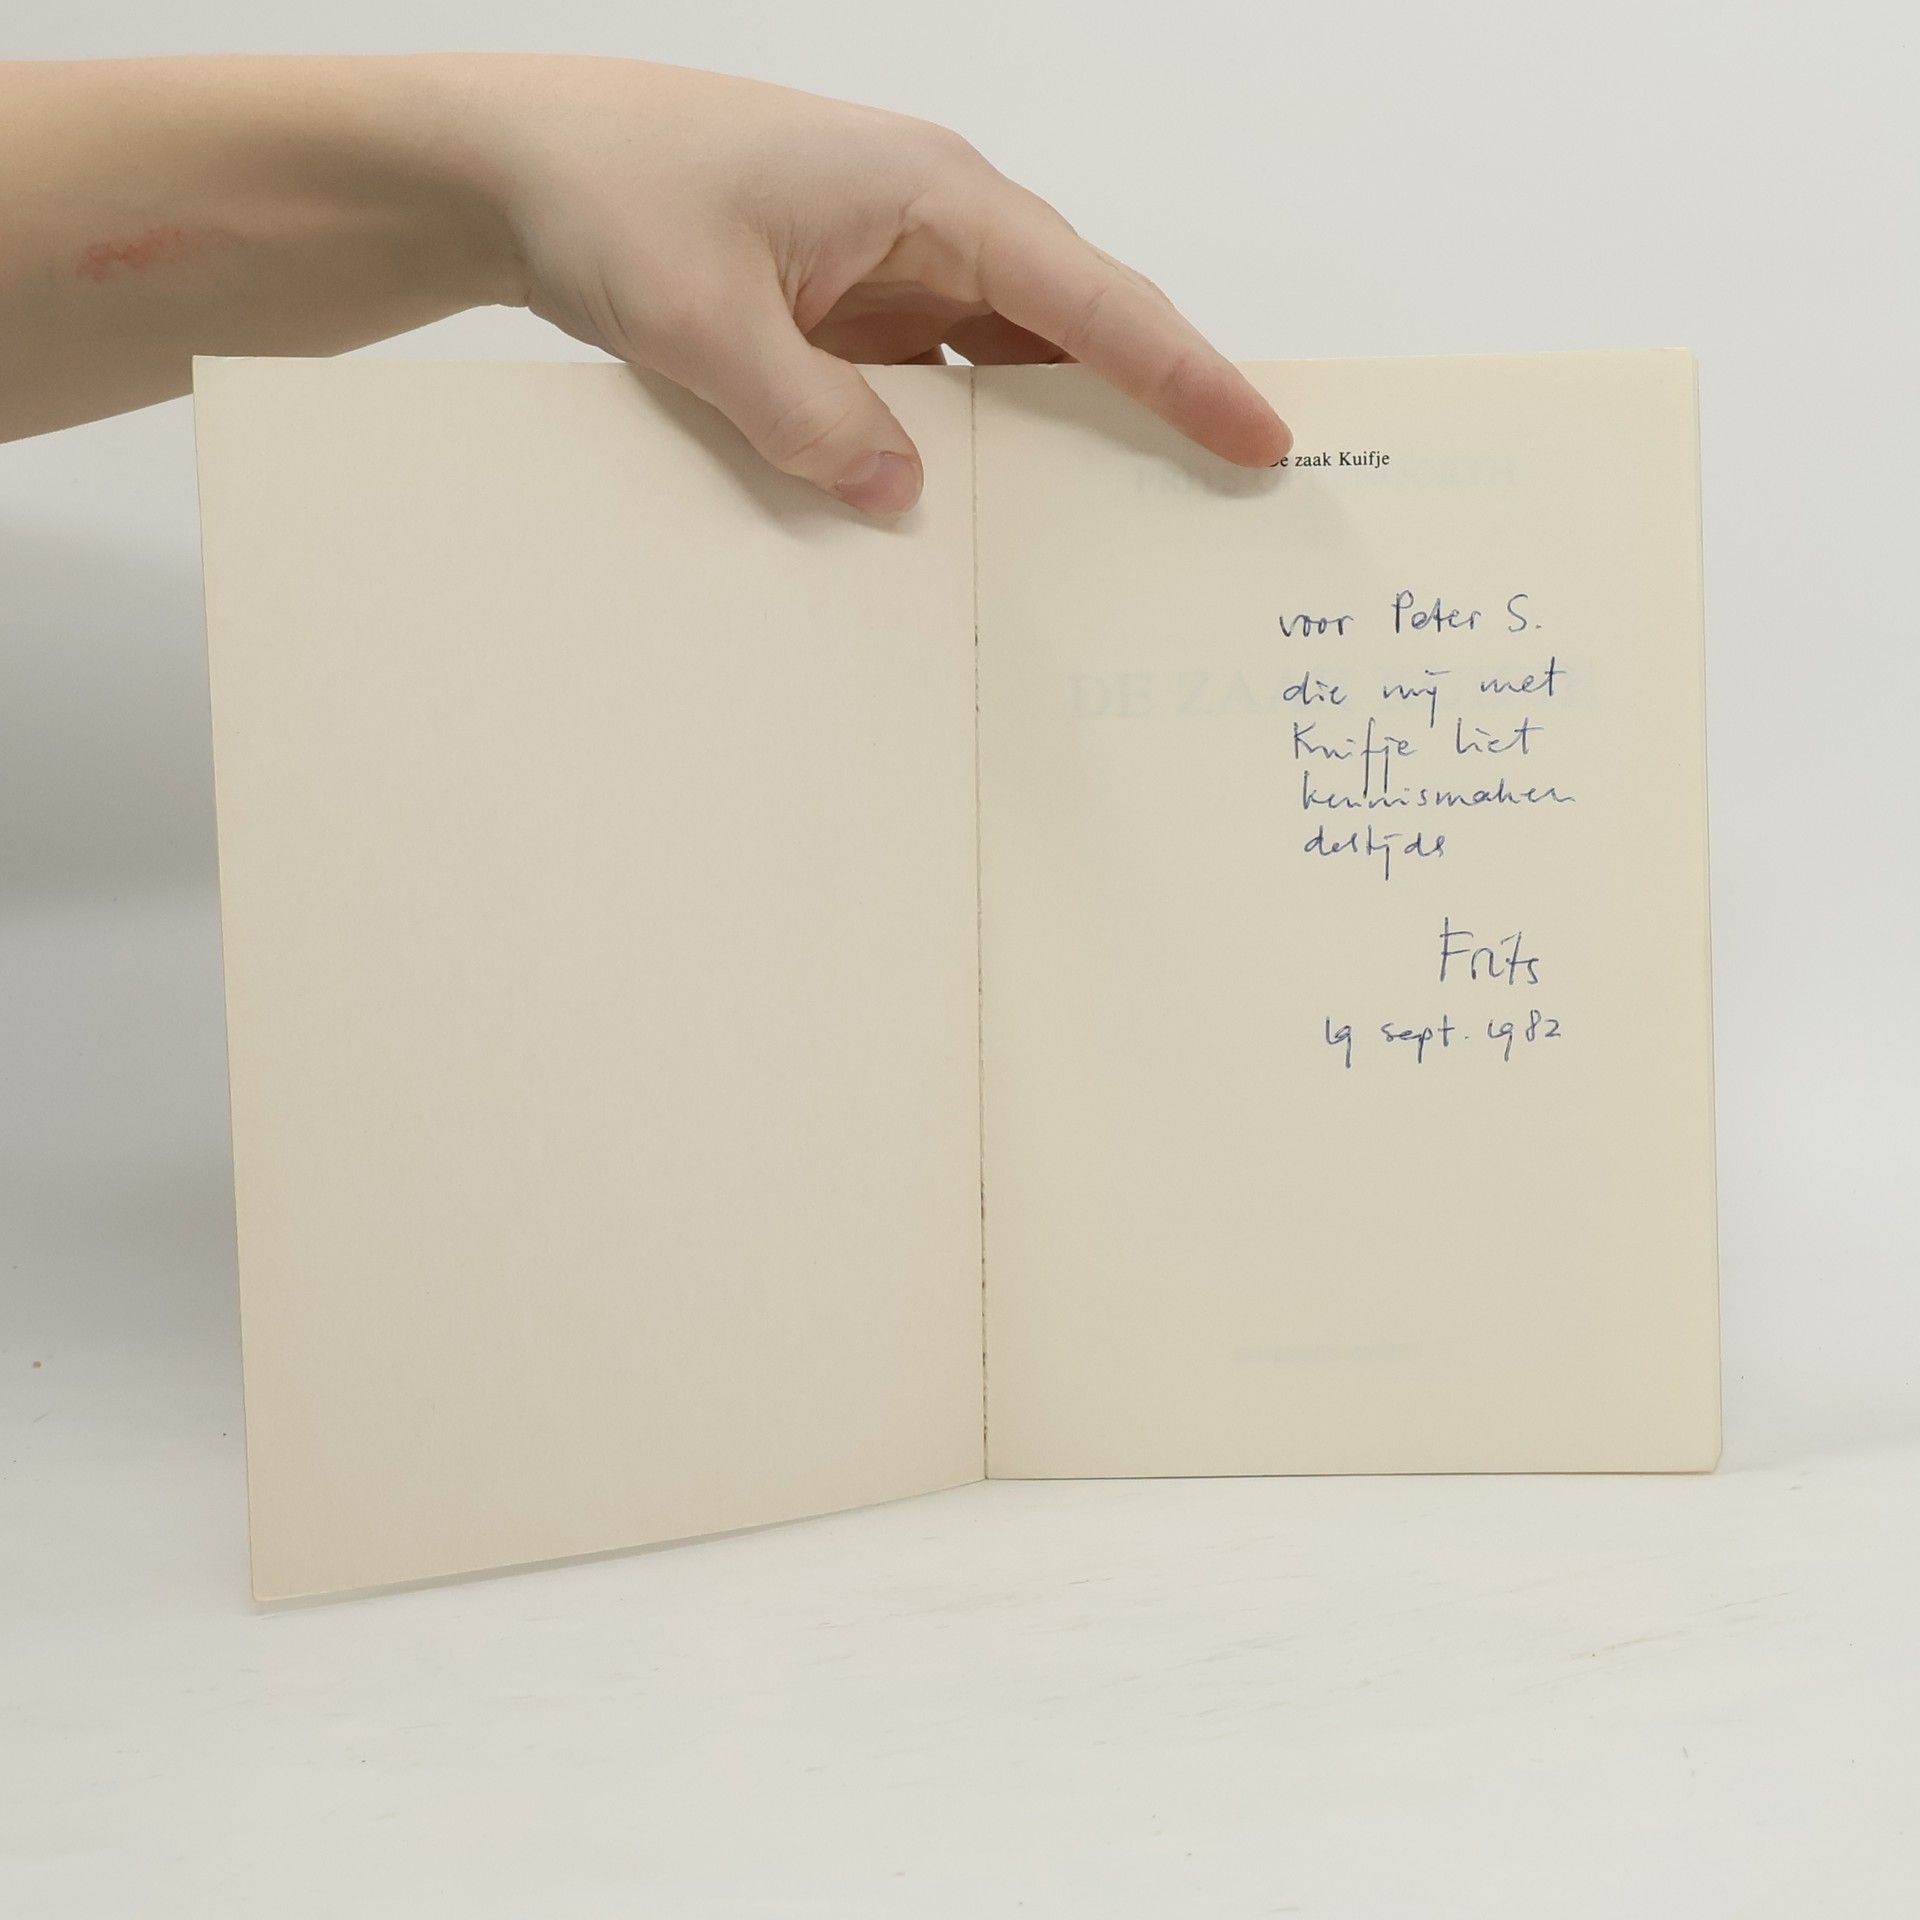 De zaak Kuifje
voor Peter S.
die mij met
Kuifje liet
kennismaken
destijds
Frits
19 sept. 1982
DE ZAAK